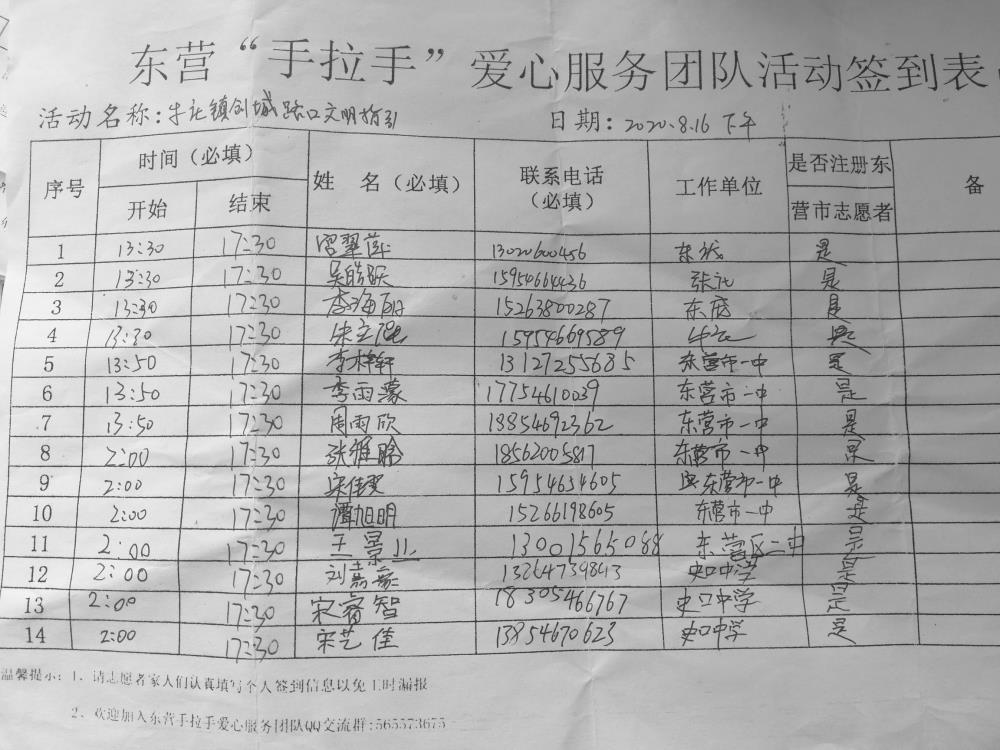 东营“手拉手”爱心服务团队活动签到表
活动名称:牛庄镇创城路口文明指引 日期:2020.8.16 下午
序号 时间(必填) 姓 名(必填) 联系电话(必填) 工作单位 是否注册东营市志愿者 备
开始 结束
1 13:30 17:30 13020600456 是
2 13:30 17:30 吴皓跃 15954664436 是
3 13:30 17:30 李海丽 15263800287 是
4 13:30 17:30 15954669589 是
5 13:50 17:30 李梓轩 13127255685 东营市一中 是
6 13:50 17:30 李雨濛 17754610039 东营市一中 是
7 13:50 17:30 周雨欣 18854692362 东营市一中 是
8 2:00 17:30 张雅晗 18562005817 东营市一中 是
9 2:00 17:30 宋佳雯 15954634605 东营市一中 是
10 2:00 17:30 谭旭明 15266198605 东营市一中 是
11 2:00 17:30 王景业 13001565088 东营区二中 是
12 2:00 17:30 刘嘉豪 13264739843 史口中学 是
13 2:00 17:30 宋睿智 18305466767 史口中学 是
14 2:00 17:30 宋艺佳 13854670623 史口中学 是
温馨提示:1、请志愿者家人们认真填写个人签到信息以免工时漏报
2、欢迎加入东营手拉手爱心服务团队QQ交流群:565573675